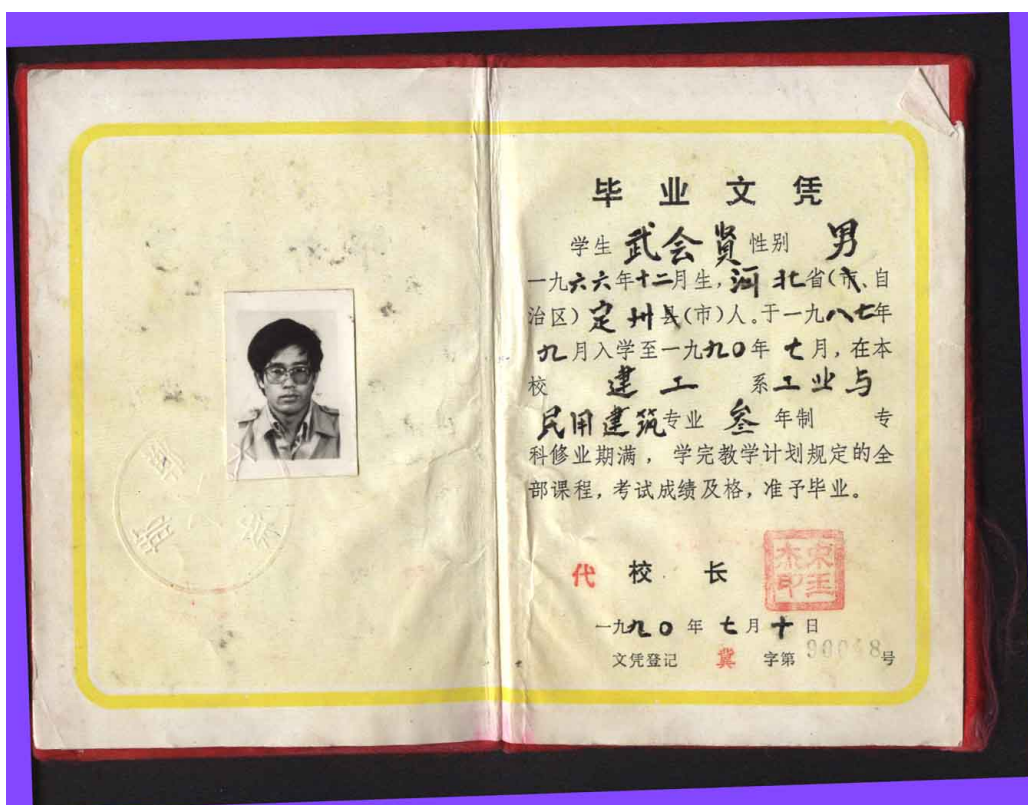 毕业文凭
学生 武会贤 性别 男
一九六六年十二月生，河北省(市、自
治区)定州县(市)人。于一九八七年
九月入学至一九九〇年七月，在本
校 建工 系工业与
民用建筑专业 叁 年制 专
科修业期满，学完教学计划规定的全
部课程，考试成绩及格，准予毕业。
代 校 长
一九九〇年七月十日
文凭登记 冀 字第 号